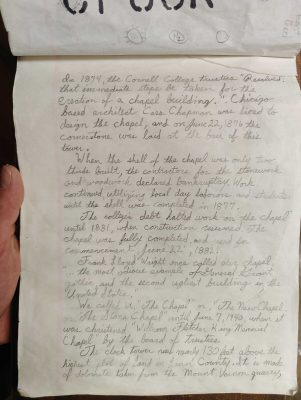 In 1874, the Cornell College trustees "Resolved:
that immediate steps be taken for the
erection of a chapel building." Chicago
based architect Cass Chapman was hired to
design the chapel, and on June 22, 1876 the
cornerstone was laid at the base of this
tower.
When the shell of the chapel was only two
thirds built, the contractors for the stonework
and woodwork declared bankruptcy. Work
continued utilizing local day laborers and students
until the shell was completed in 1877.
The college's debt halted work on the chapel
until 1881, when construction resumed. The
chapel was fully completed, and used for
commencement June 22, 1882.
Frank Lloyd Wright once called our chapel
"the most odious example of General Grant
gothic and the second ugliest building in the
United States."
We called it "The Chapel" or "The New Chapel"
or "The Stone Chapel" until June 7, 1940, when it
was christened "William Fletcher King Memorial
Chapel" by the board of trustees.
The clock tower rises nearly 130 feet above the
highest plot of land in Linn County. It is made
of dolomite taken from the Mount Vernon quarry,